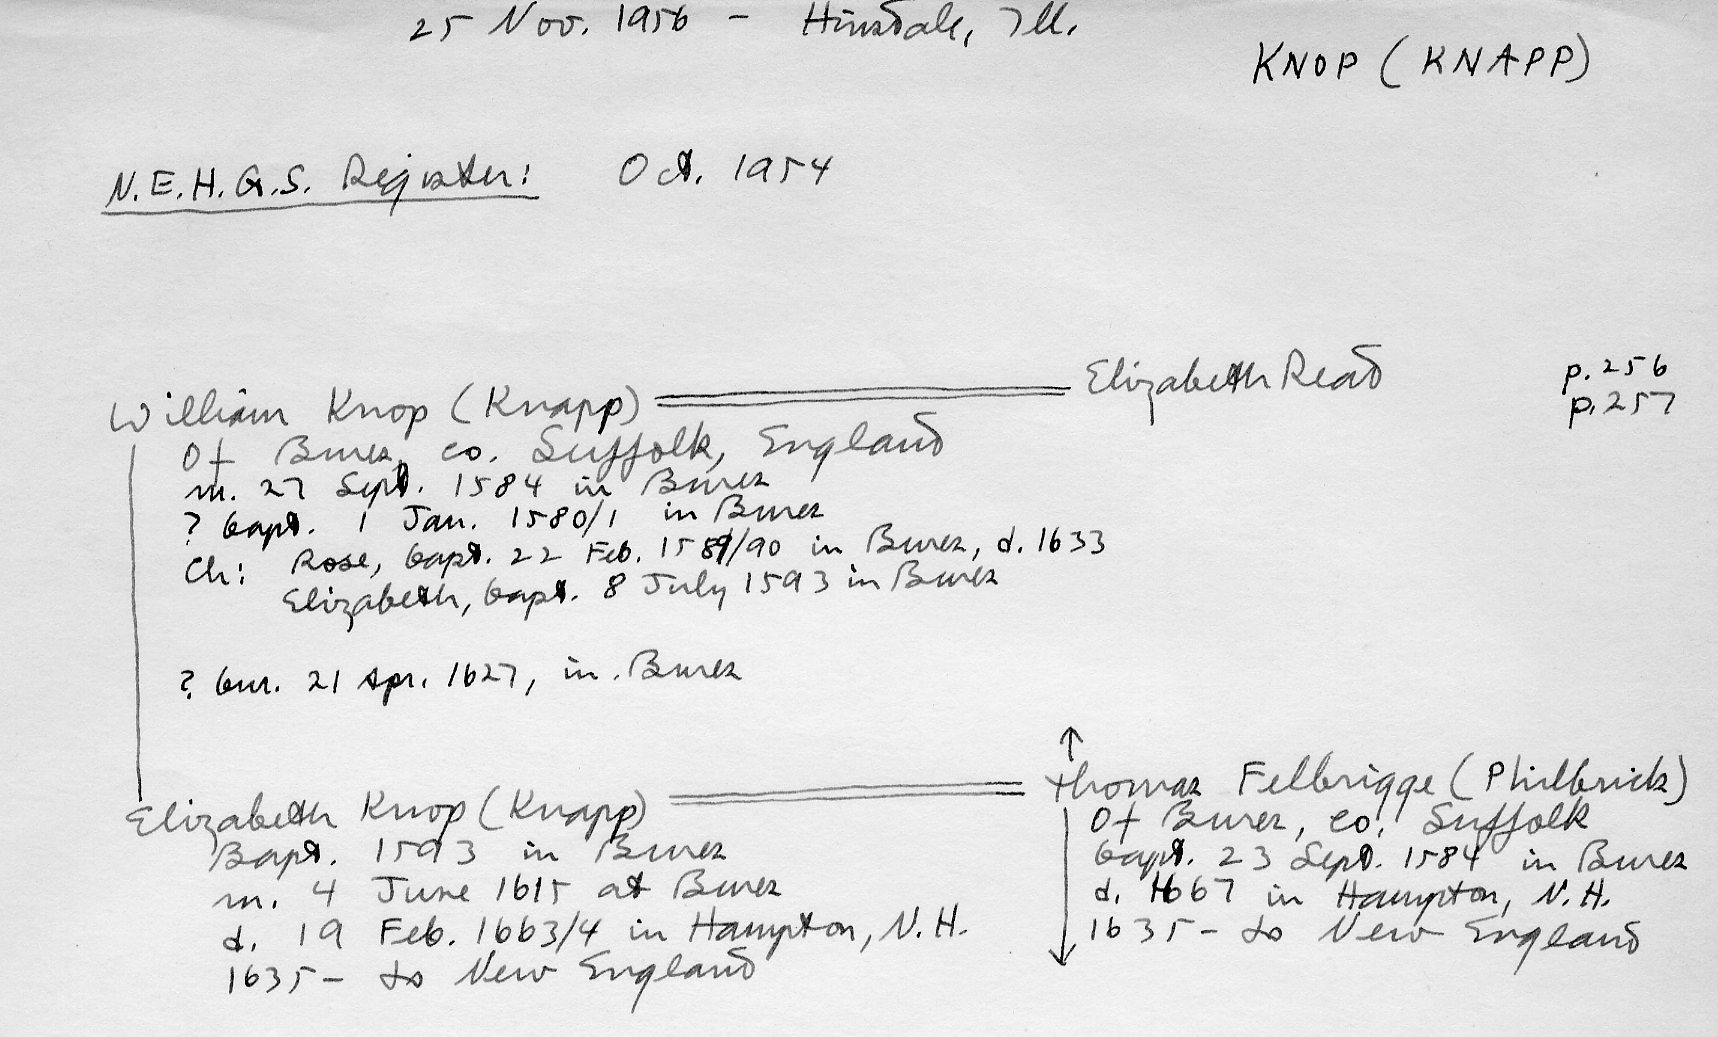 25 Nov. 1956 - Hinsdale, Ill.
KNOP (KNAPP)
N.E.H.G.S. Register: Oct. 1954
William Knop (Knapp) Elizabeth Read p.256
p.257
Of Bures, co. Suffolk, England
m. 27 Sept. 1584 in Bures
? bapt. 1 Jan. 1580/1 in Bures
Ch: Rose, bapt. 22 Feb. 1589/90 in Bures, d. 1633
Elizabeth, bapt. 8 July 1593 in Bures
? bur. 21 Apr. 1627, in Bures
Elizabeth Knop (Knapp)
Bapt. 1593 in Bures
m. 4 June 1615 at Bures
d. 19 Feb. 1663/4 in Hampton, N.H.
1635- to New England
Thomas Felbrigge (Philbrick)
Of Bures, co. Suffolk
bapt. 23 Sept. 1584 in Bures
d. 1667 in Hampton, N.H.
1635- to New England